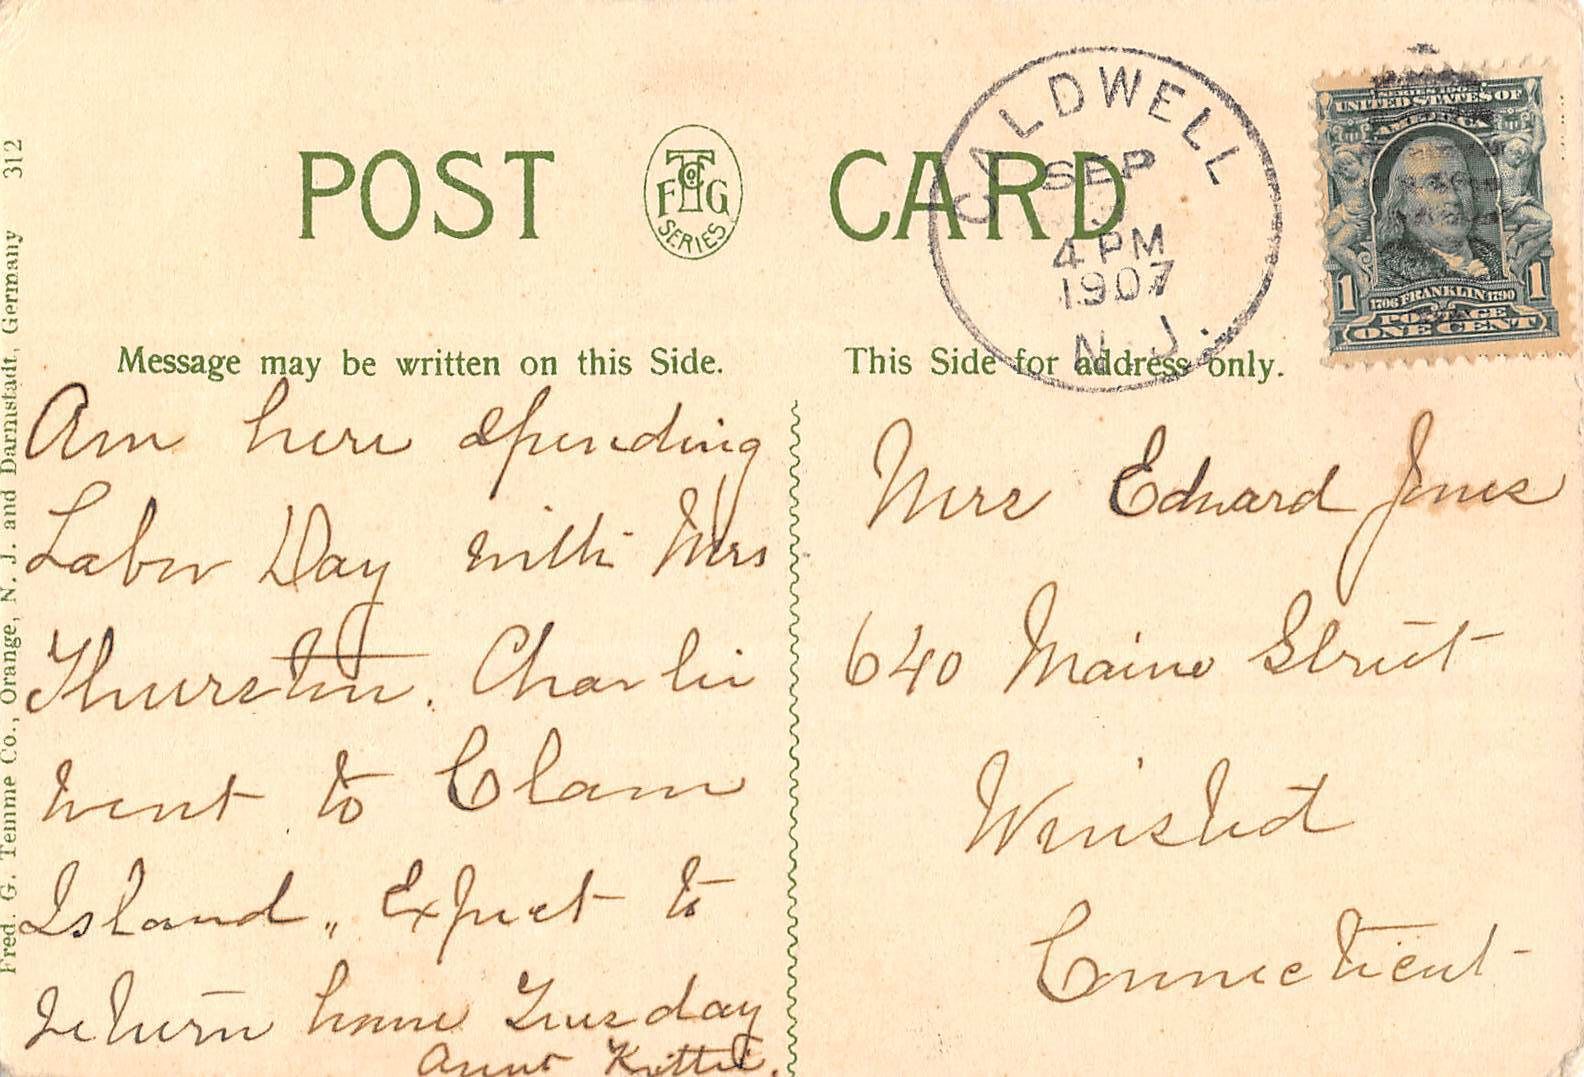 POST CARD
F T Co G
SERIES
CALDWELL
SEP
4 PM
1907
N.J.
UNITED STATES OF
AMERICA
1 1706 FRANKLIN 1790 1
POSTAGE
ONE CENT
Message may be written on this Side.
Am here spending
Labor Day with Mrs
Thurston. Charlie
went to Clam
Island,, Expect to
return home Tuesday
Aunt Kittie.
This Side for address only.
Mrs Edward Jones
640 Maine Street
Winsted
Connecticut
Fred. G. Temme Co., Orange, N. J. and Darmstadt, Germany 312